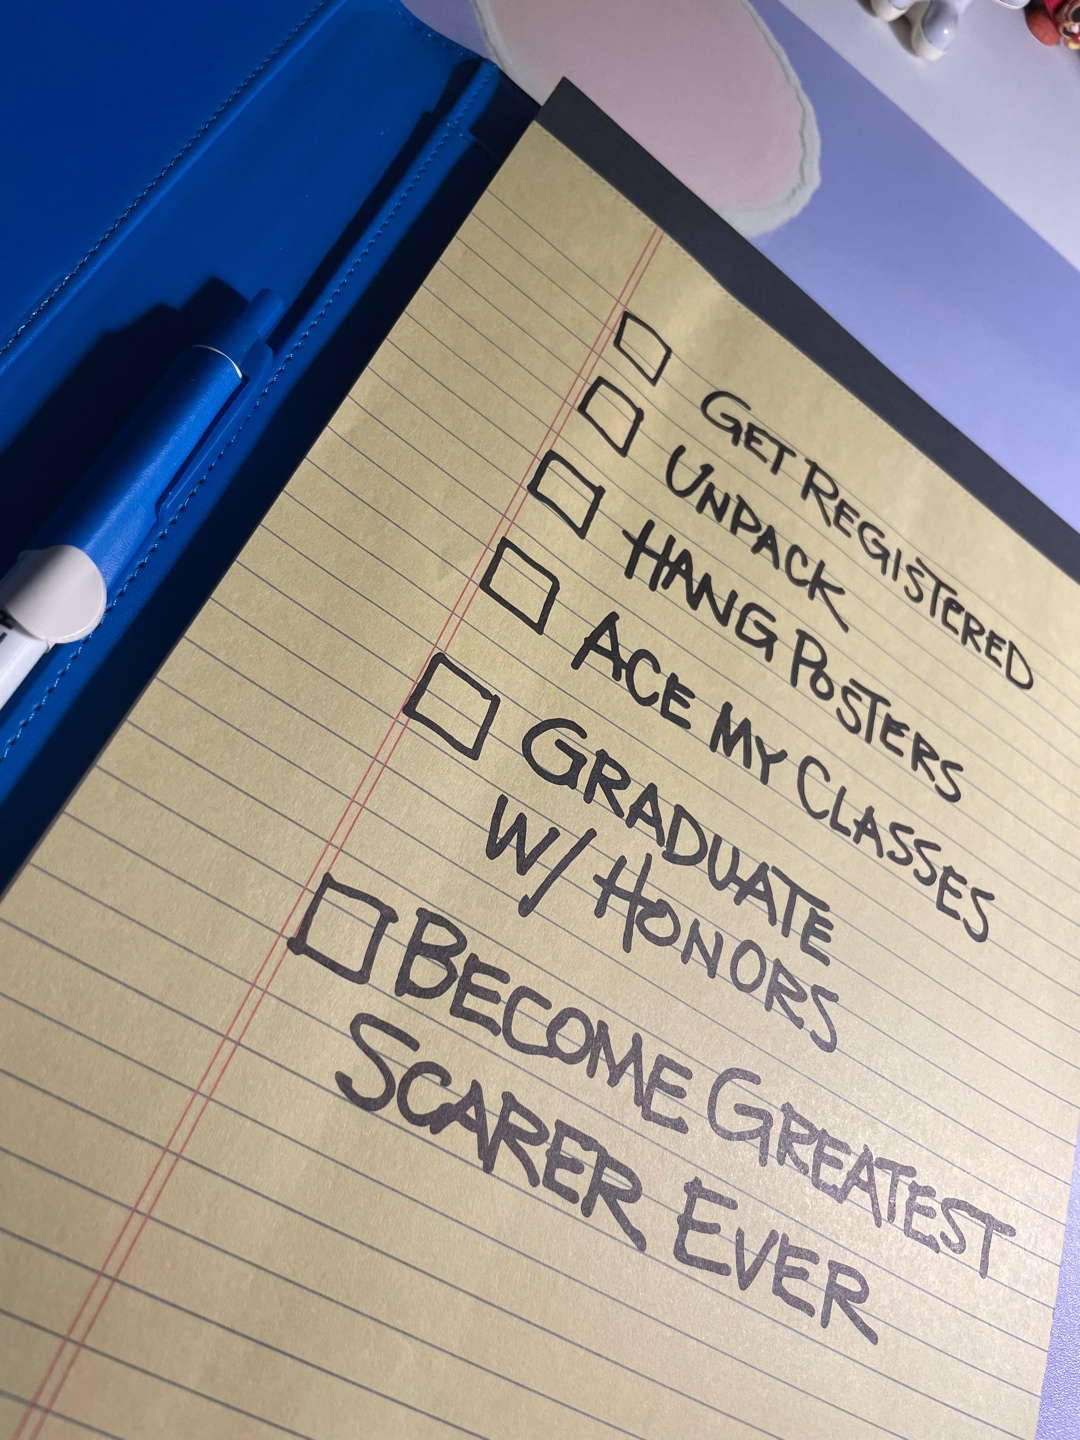 GET REGISTERED
UNPACK
HANG POSTERS
ACE MY CLASSES
GRADUATE
W/ HONORS
BECOME GREATEST
SCARER EVER